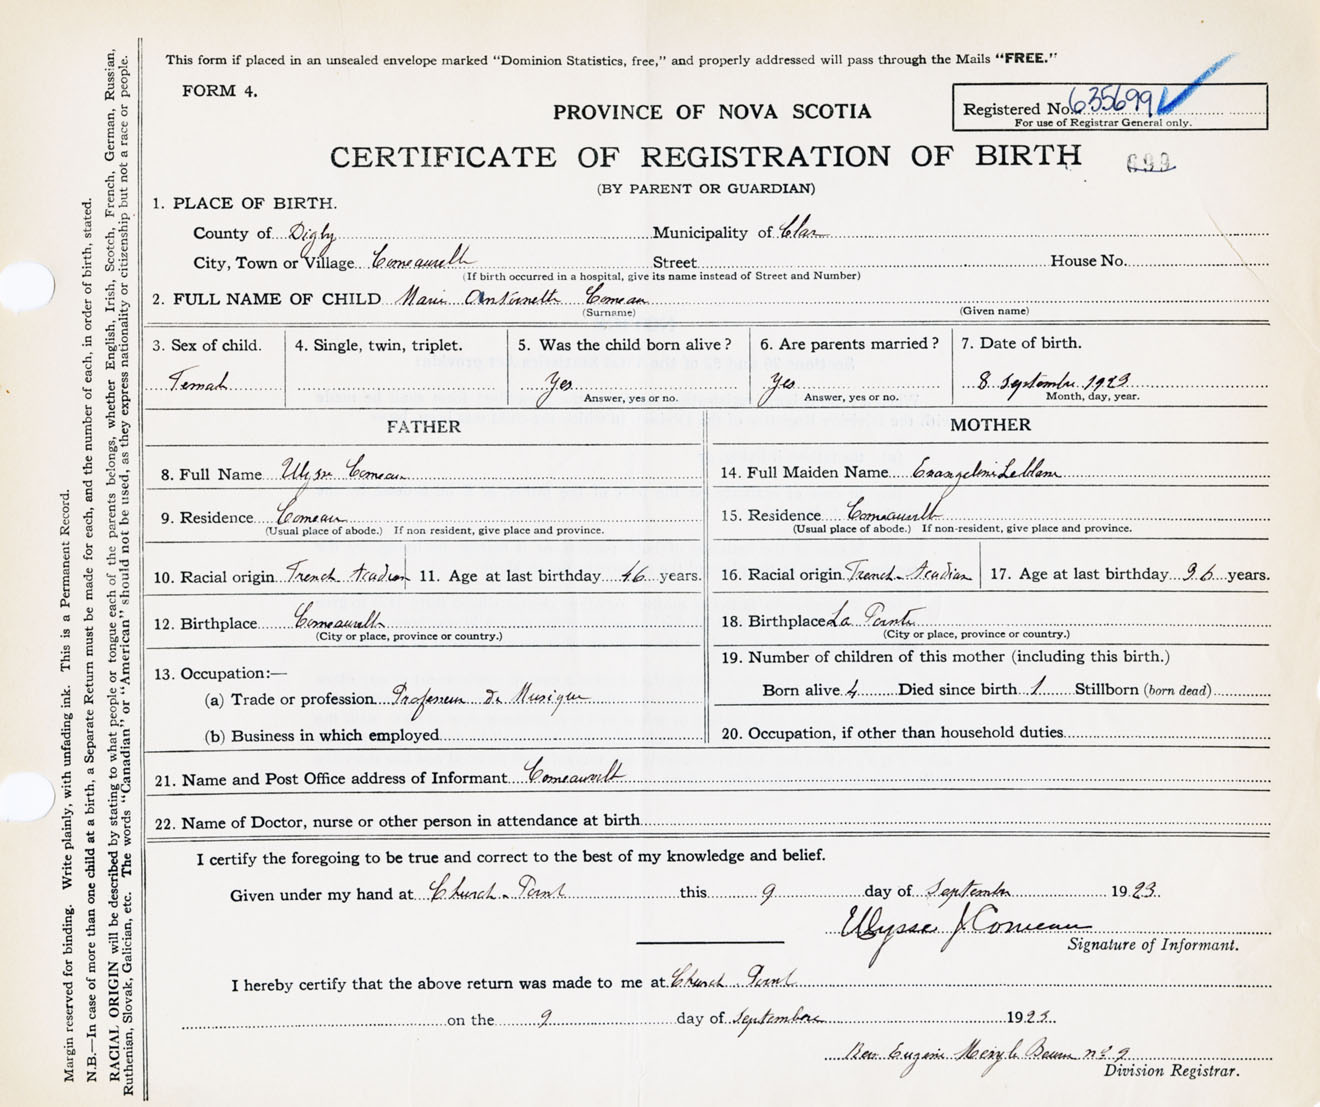 This form if placed in an unsealed envelope marked “Dominion Statistics, free,” and properly addressed will pass through the Mails “FREE.”
FORM 4.
PROVINCE OF NOVA SCOTIA
Registered No. 635699
For use of Registrar General only.
CERTIFICATE OF REGISTRATION OF BIRTH
699
(BY PARENT OR GUARDIAN)
1. PLACE OF BIRTH.
County of Digby Municipality of Clare
City, Town or Village Comeauville Street House No.
(If birth occurred in a hospital, give its name instead of Street and Number)
2. FULL NAME OF CHILD Marie Antoinette Comeau
(Surname) (Given name)
3. Sex of child. 4. Single, twin, triplet. 5. Was the child born alive? 6. Are parents married? 7. Date of birth.
Female Yes Yes 8 Septembre 1923
Answer, yes or no. Answer, yes or no. Month, day, year.
FATHER MOTHER
8. Full Name Ulysse Comeau 14. Full Maiden Name Evangeline Leblanc
9. Residence Comeau 15. Residence Comeauville
(Usual place of abode.) If non resident, give place and province. (Usual place of abode.) If non-resident, give place and province.
10. Racial origin French Acadian 11. Age at last birthday 46 years. 16. Racial origin French-Acadian 17. Age at last birthday 36 years.
12. Birthplace Comeauville 18. Birthplace La Pointe
(City or place, province or country.) (City or place, province or country.)
13. Occupation:—
(a) Trade or profession Professeur de Musique
(b) Business in which employed
19. Number of children of this mother (including this birth.)
Born alive 4 Died since birth 1 Stillborn (born dead)
20. Occupation, if other than household duties
21. Name and Post Office address of Informant Comeauville
22. Name of Doctor, nurse or other person in attendance at birth
I certify the foregoing to be true and correct to the best of my knowledge and belief.
Given under my hand at Church-Point this 9 day of Septembre 1923
Ulysse J. Comeau
Signature of Informant.
I hereby certify that the above return was made to me at Church Point
on the 9 day of Septembre 1923
Rev. Eugene no 9
Division Registrar.
Margin reserved for binding. Write plainly, with unfading ink. This is a Permanent Record.
N.B.—In case of more than one child at a birth, a Separate Return must be made for each, and the number of each, in order of birth, stated.
RACIAL ORIGIN will be described by stating to what people or tongue each of the parents belongs, whether English, Irish, Scotch, French, German, Russian,
Ruthenian, Slovak, Galician, etc. The words “Canadian” or “American” should not be used, as they express nationality or citizenship but not a race or people.